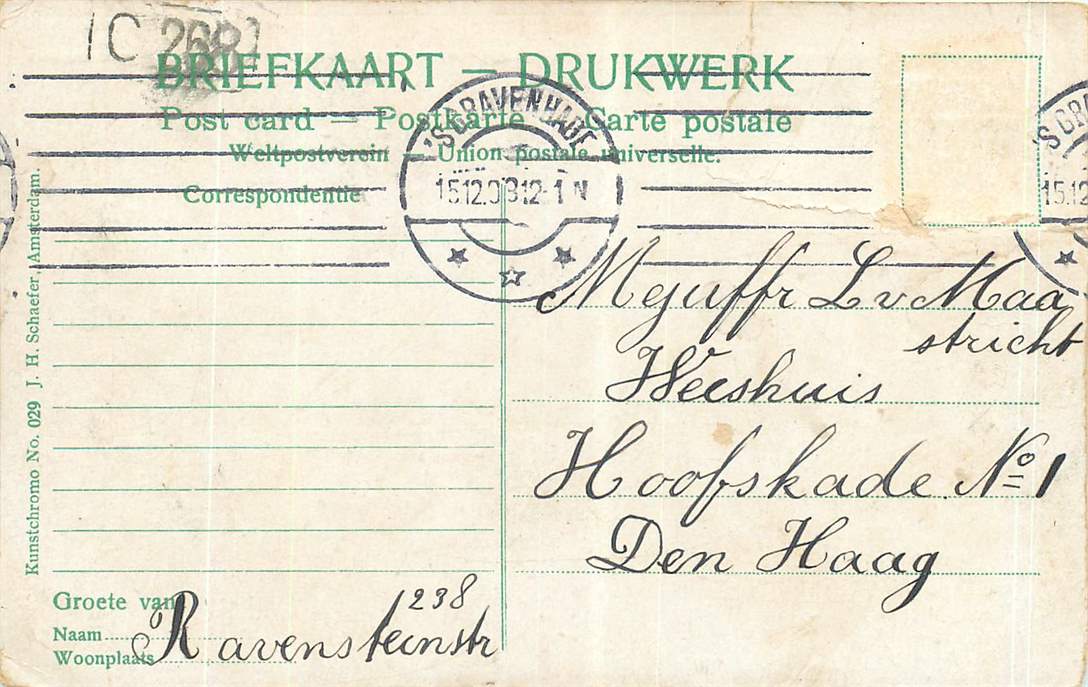 IC
BRIEFKAART — DRUKWERK
Post card — Postkarte — Carte postale
Weltpostverein — Union postale universelle.
Correspondentie
'S GRAVENHAGE
12-1 N
Mejuffr L v Maa
stricht
Weeshuis
Hoofskade No 1
Den Haag
Kunstchromo No. 029 J. H. Schaefer, Amsterdam.
Groete van
Naam
Woonplaats
238
Ravensteinstr
'S GRA
15.12